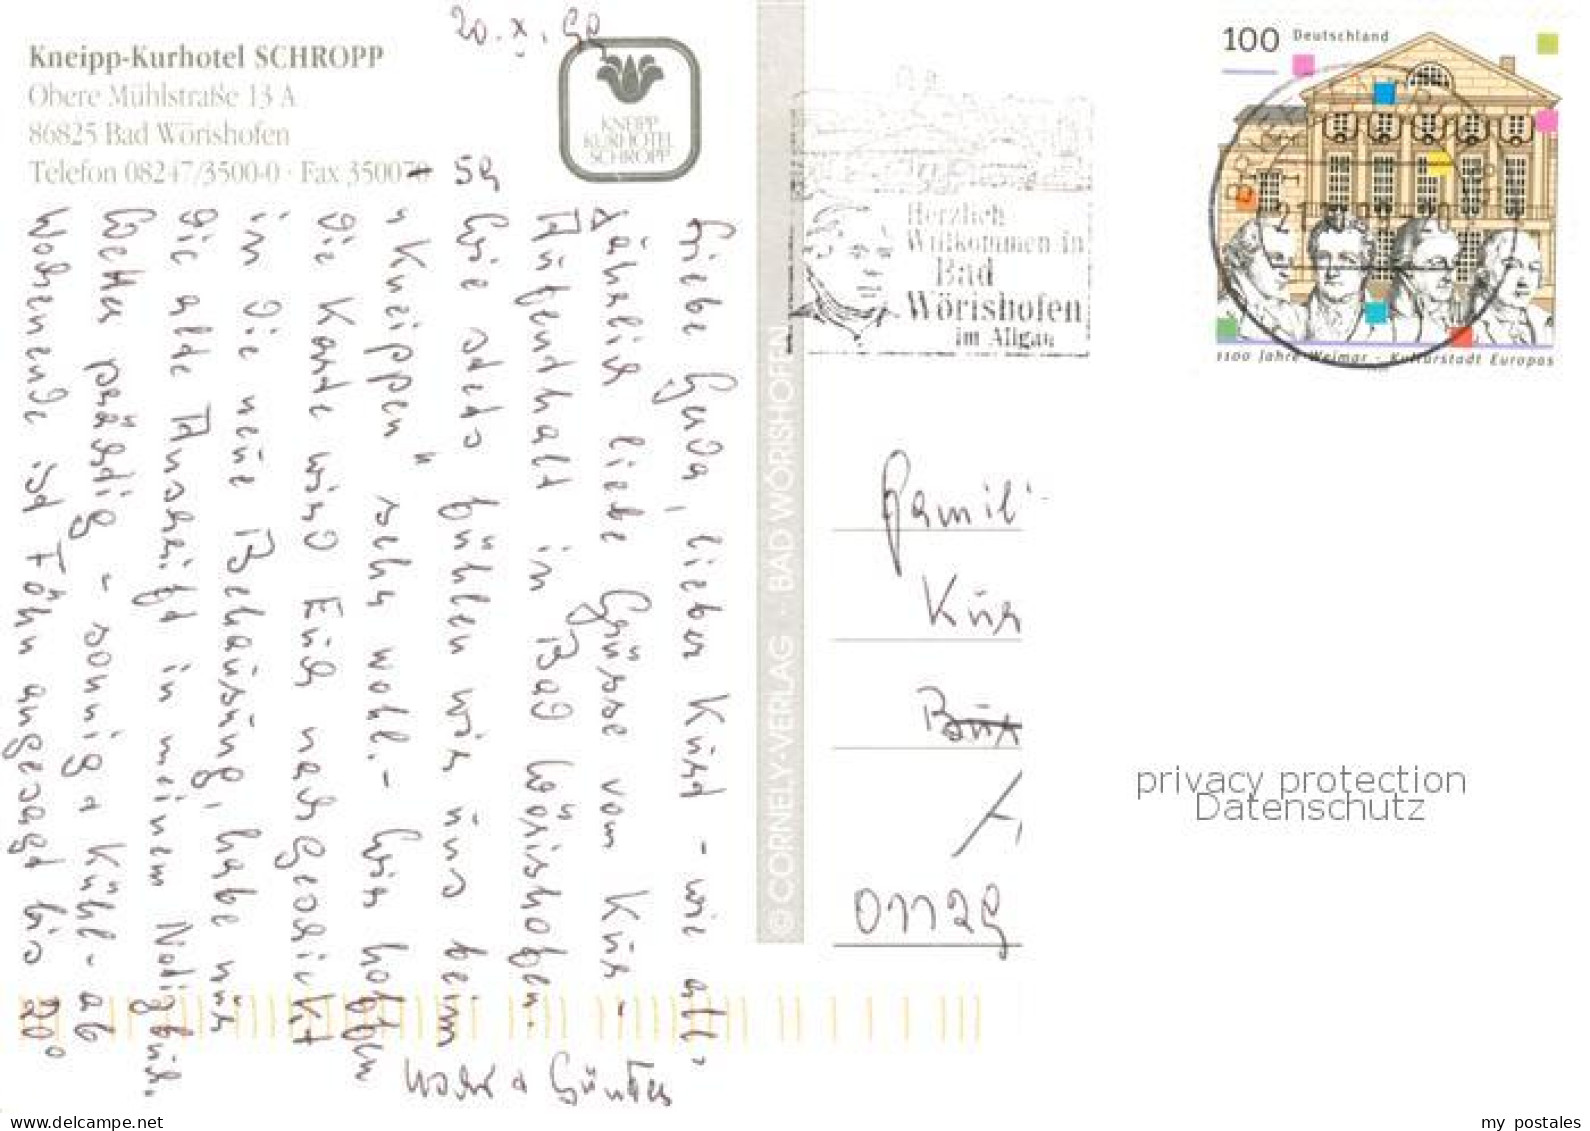 20.X.99
Kneipp-Kurhotel SCHROPP
Obere Mühlstraße 13 A
86825 Bad Wörishofen
Telefon 08247/3500-0 · Fax 350070 59
KNEIPP
KURHOTEL
SCHROPP
Liebe Gerda, lieber Kurt - wie all-
jährlich liebe Grüsse vom Kur-
Aufenthalt in Bad Wörishofen.
Wie stets fühlen wir uns beim
"Kneippen" sehr wohl. - Wir hoffen
die Karte wird Euch nachgeschickt
in die neue Behausung, habe nur
die alte Anschrift in meinem Notizbuch.
Wetter prächtig - sonnig + kühl - ab
Wochenende ist Föhn angesagt bis 20°
+ Günter
© CORNELY-VERLAG · BAD WÖRISHOFEN
Herzlich
Willkommen in
Bad
Wörishofen
im Allgäu
100 Deutschland
1100 Jahre Weimar - Kulturstadt Europas
Famili
Kur
01129
privacy protection
Datenschutz
www.delcampe.net
my_postales